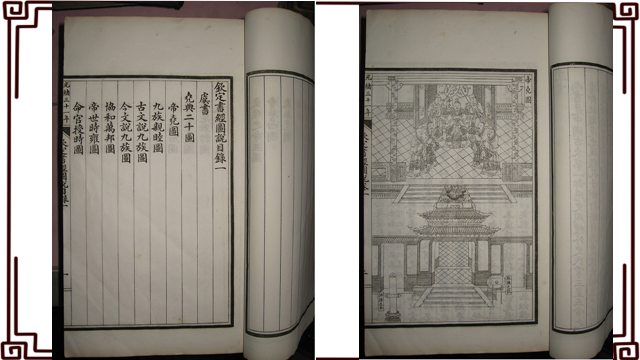 欽定書經圖說目錄一
虞書
堯典二十圖
帝堯圖
九族親睦圖
古文說九族圖
今文說九族圖
協和萬邦圖
帝世時雍圖
命官授時圖
光緒三十一年
帝堯圖
光緒三十一年